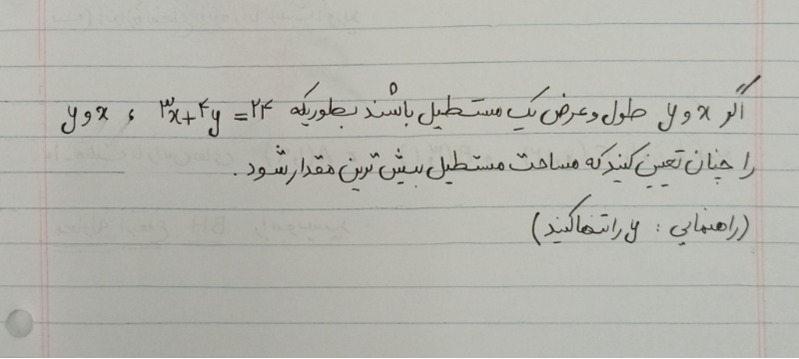 اگر x و y طول و عرض یک مستطیل باشند بطوریکه ۳x+۴y=۲۴ ، x و y
را چنان تعیین کنید که مساحت مستطیل بیش ترین مقدار شود.
(راهنمایی : y را تنها کنید)